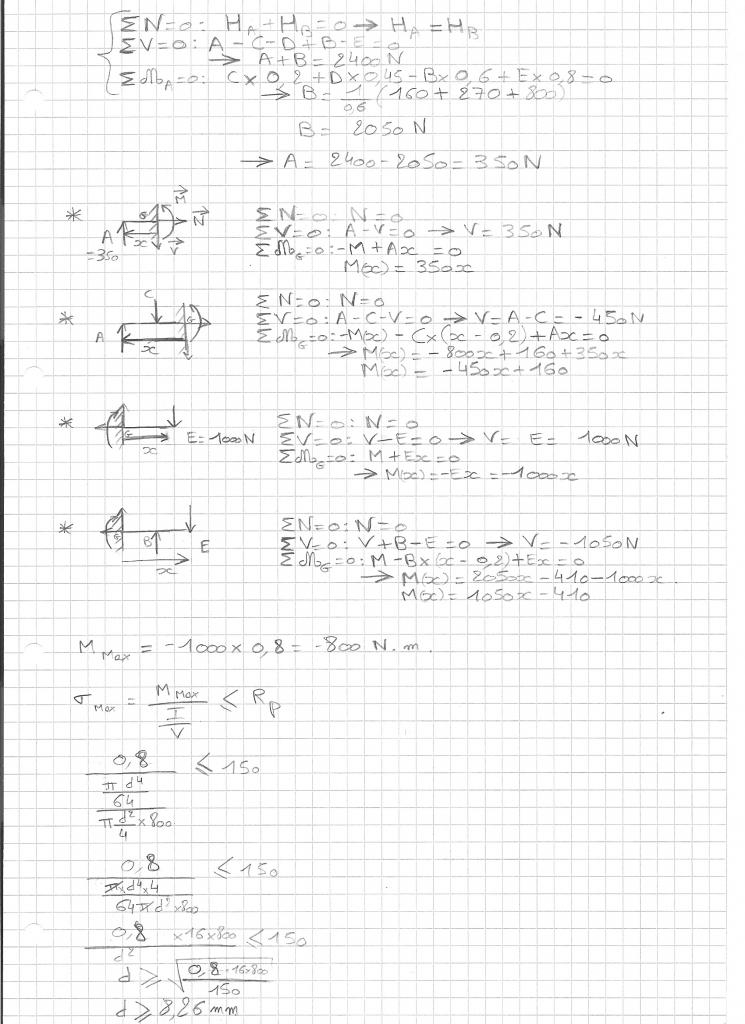 ΣN=0: H_A + H_B = 0 → H_A = H_B
ΣV=0: A - C - D + B - E = 0
→ A+B = 2400N
Σℳ_A=0: C x 0,2 + D x 0,45 - B x 0,6 + E x 0,8 = 0
→ B = 1/0,6 (160 + 270 + 800)
B = 2050 N
→ A = 2400 - 2050 = 350N
* A =350 x G M N V
ΣN=0: N=0
ΣV=0: A-V=0 → V=350N
Σℳ_G=0: -M+Ax = 0
M(x) = 350x
* A C x G
ΣN=0: N=0
ΣV=0: A-C-V=0 → V=A-C = -450N
Σℳ_G=0: -M(x) - Cx(x-0,2) + Ax=0
→ M(x) = -800x + 160 + 350x
M(x) = -450x + 160
* G x E=1000N
ΣN=0: N=0
ΣV=0: V-E=0 → V= E= 1000N
Σℳ_G=0: M+Ex=0
→ M(x)=-Ex = -1000x
* G B E x
ΣN=0: N=0
ΣV=0: V+B-E=0 → V=-1050N
Σℳ_G=0: M-Bx(x-0,2)+Ex=0
→ M(x)=2050x-410-1000x
M(x)=1050x-410
M_Max = -1000 x 0,8 = -800 N.m.
σ_Max = M_Max / (I/V) ≤ Rp
0,8 / ((πd⁴/64) / (πd²/4 x 800)) ≤ 150
0,8 / (π x d⁴ x 4 / 64πd² x 800) ≤ 150
0,8 x 16 x 800 / d² ≤ 150
d ≥ √(0,8 · 16 x 800 / 150)
d ≥ 8,26 mm